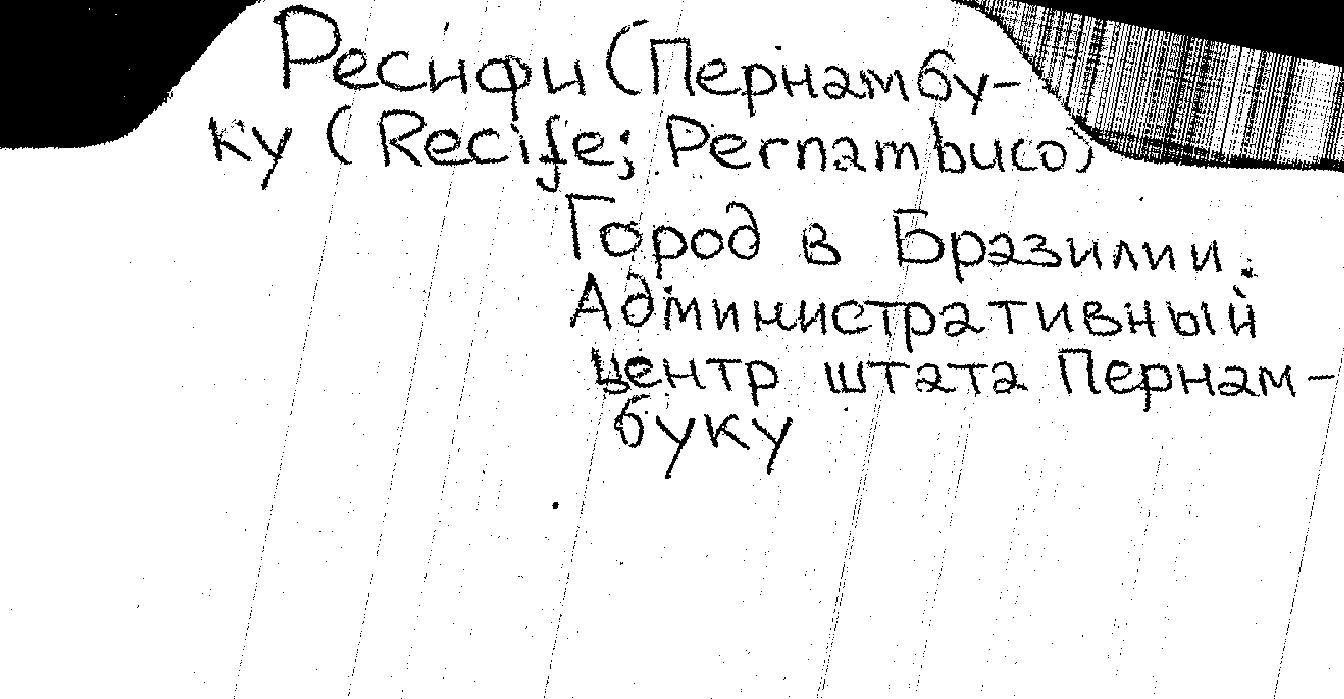 Ресифи (Пернамбу-
ку (Recife; Pernambuco)
Город в Бразилии.
Административный
центр штата Пернам-
буку